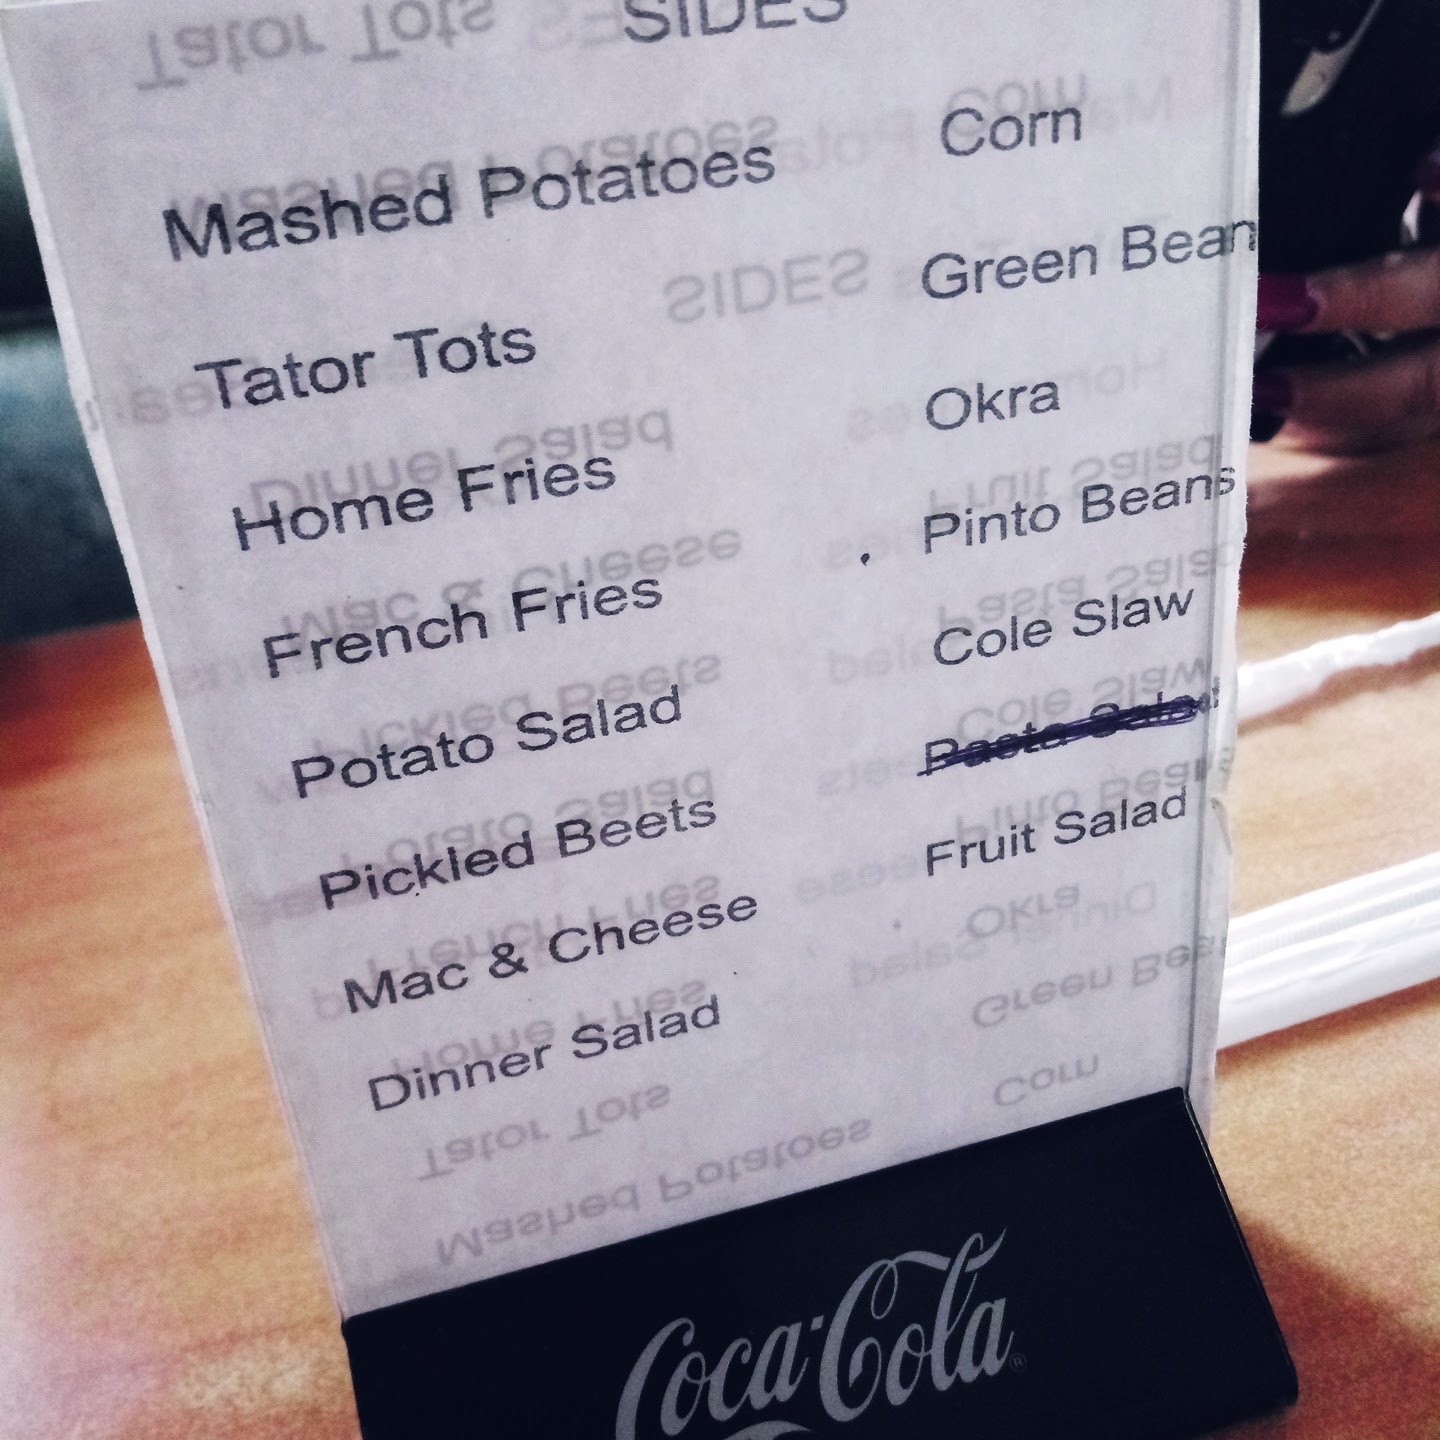 SIDES
Mashed Potatoes
Tator Tots
Home Fries
French Fries
Potato Salad
Pickled Beets
Mac & Cheese
Dinner Salad
Corn
Green Bean
Okra
Pinto Beans
Cole Slaw
Pasta Salad
Fruit Salad
Coca-Cola